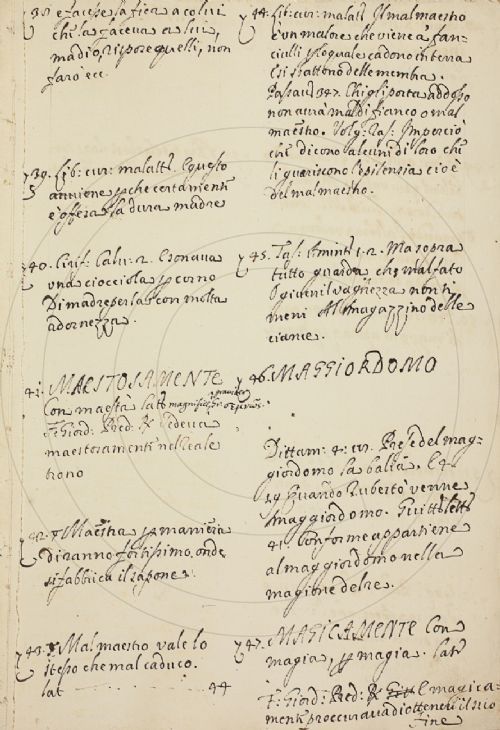 38 e tacesse la fiera a colui
che la faceva a lui,
ma dio, rispose quelli, non
faro ecc.
39. Lib: cur: malatt. E questo
avviene p che certamente
è offesa la dura madre
40. Ciriff: Calv: 2. E sonava
una ciocciola p corno
Di madreperla con molta
adornezza.
41. MAESTOSAMENTE
Con maestà latt
magnifice,
Fr: Giord: Pred: R Sedeva
maestosamente nel reale
trono
42. Maestra p maniera
di ranno fortissimo, onde
si fabbrica il sapone.
43. Mal maestro vale lo
stesso che mal caduco.
lat 44
44. Lib: cur: malatt Il mal maestro
è un malore che viene a' fan-
ciulli p lo quale cadono in terra
e si sbattono delle membra.
Passav: 347. Chi gli porta addosso
non avrà mal di fianco o mal
maestro. Volg: Ras: Imperciò
che dicono alcuni di loro che
li gueriscono l'epilensia cioè
del mal maestro.
45. Tas: Amint: 1. 2. Ma sopra
tutto guarda che mal fato
o giovenil vaghezza non ti
meni Al magazzino delle
ciance.
46. MAGGIORDOMO
Dittam: 4: cur. Prese del mag-
giordomo la balìa. E 4
19 Quando Ruberto venne
maggiordomo. Guitt: lett:
41. Conforme appartiene
al maggiordomo nella
magione del re.
47. MAGICAMENTE Con
magia, p magia. latt
Fr: Giord: Pred: R E magica-
mente proccurava di ottenere il suo
fine